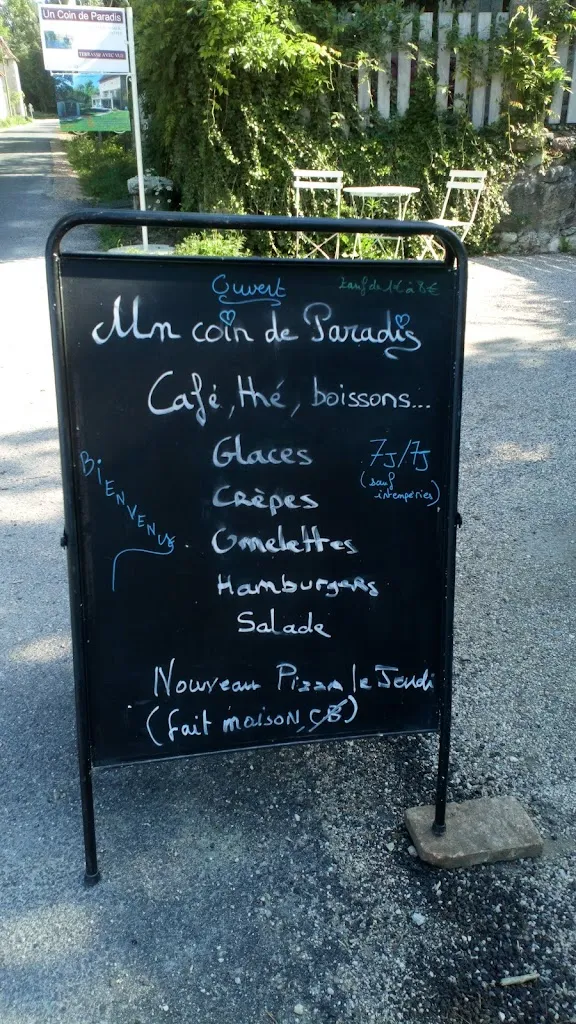 Un Coin de Paradis
TERRASSE AVEC VUE
Ouvert
Un coin de Paradis
Café, thé, boissons...
Glaces
7J/7J
(sauf
intempéries)
Crêpes
BIENVENUE
Omelettes
Hamburgers
Salade
Nouveau Pizza le Jeudi
(fait maison, CB)